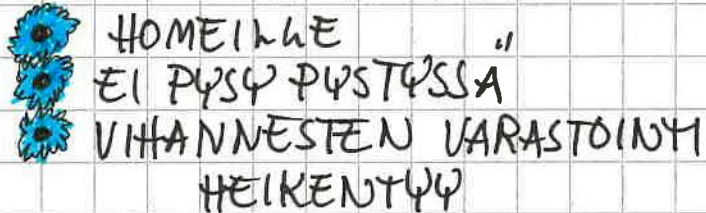 HOMEILLE
EI PYSY PYSTYSSÄ
VIHANNESTEN VARASTOINTI
HEIKENTYY